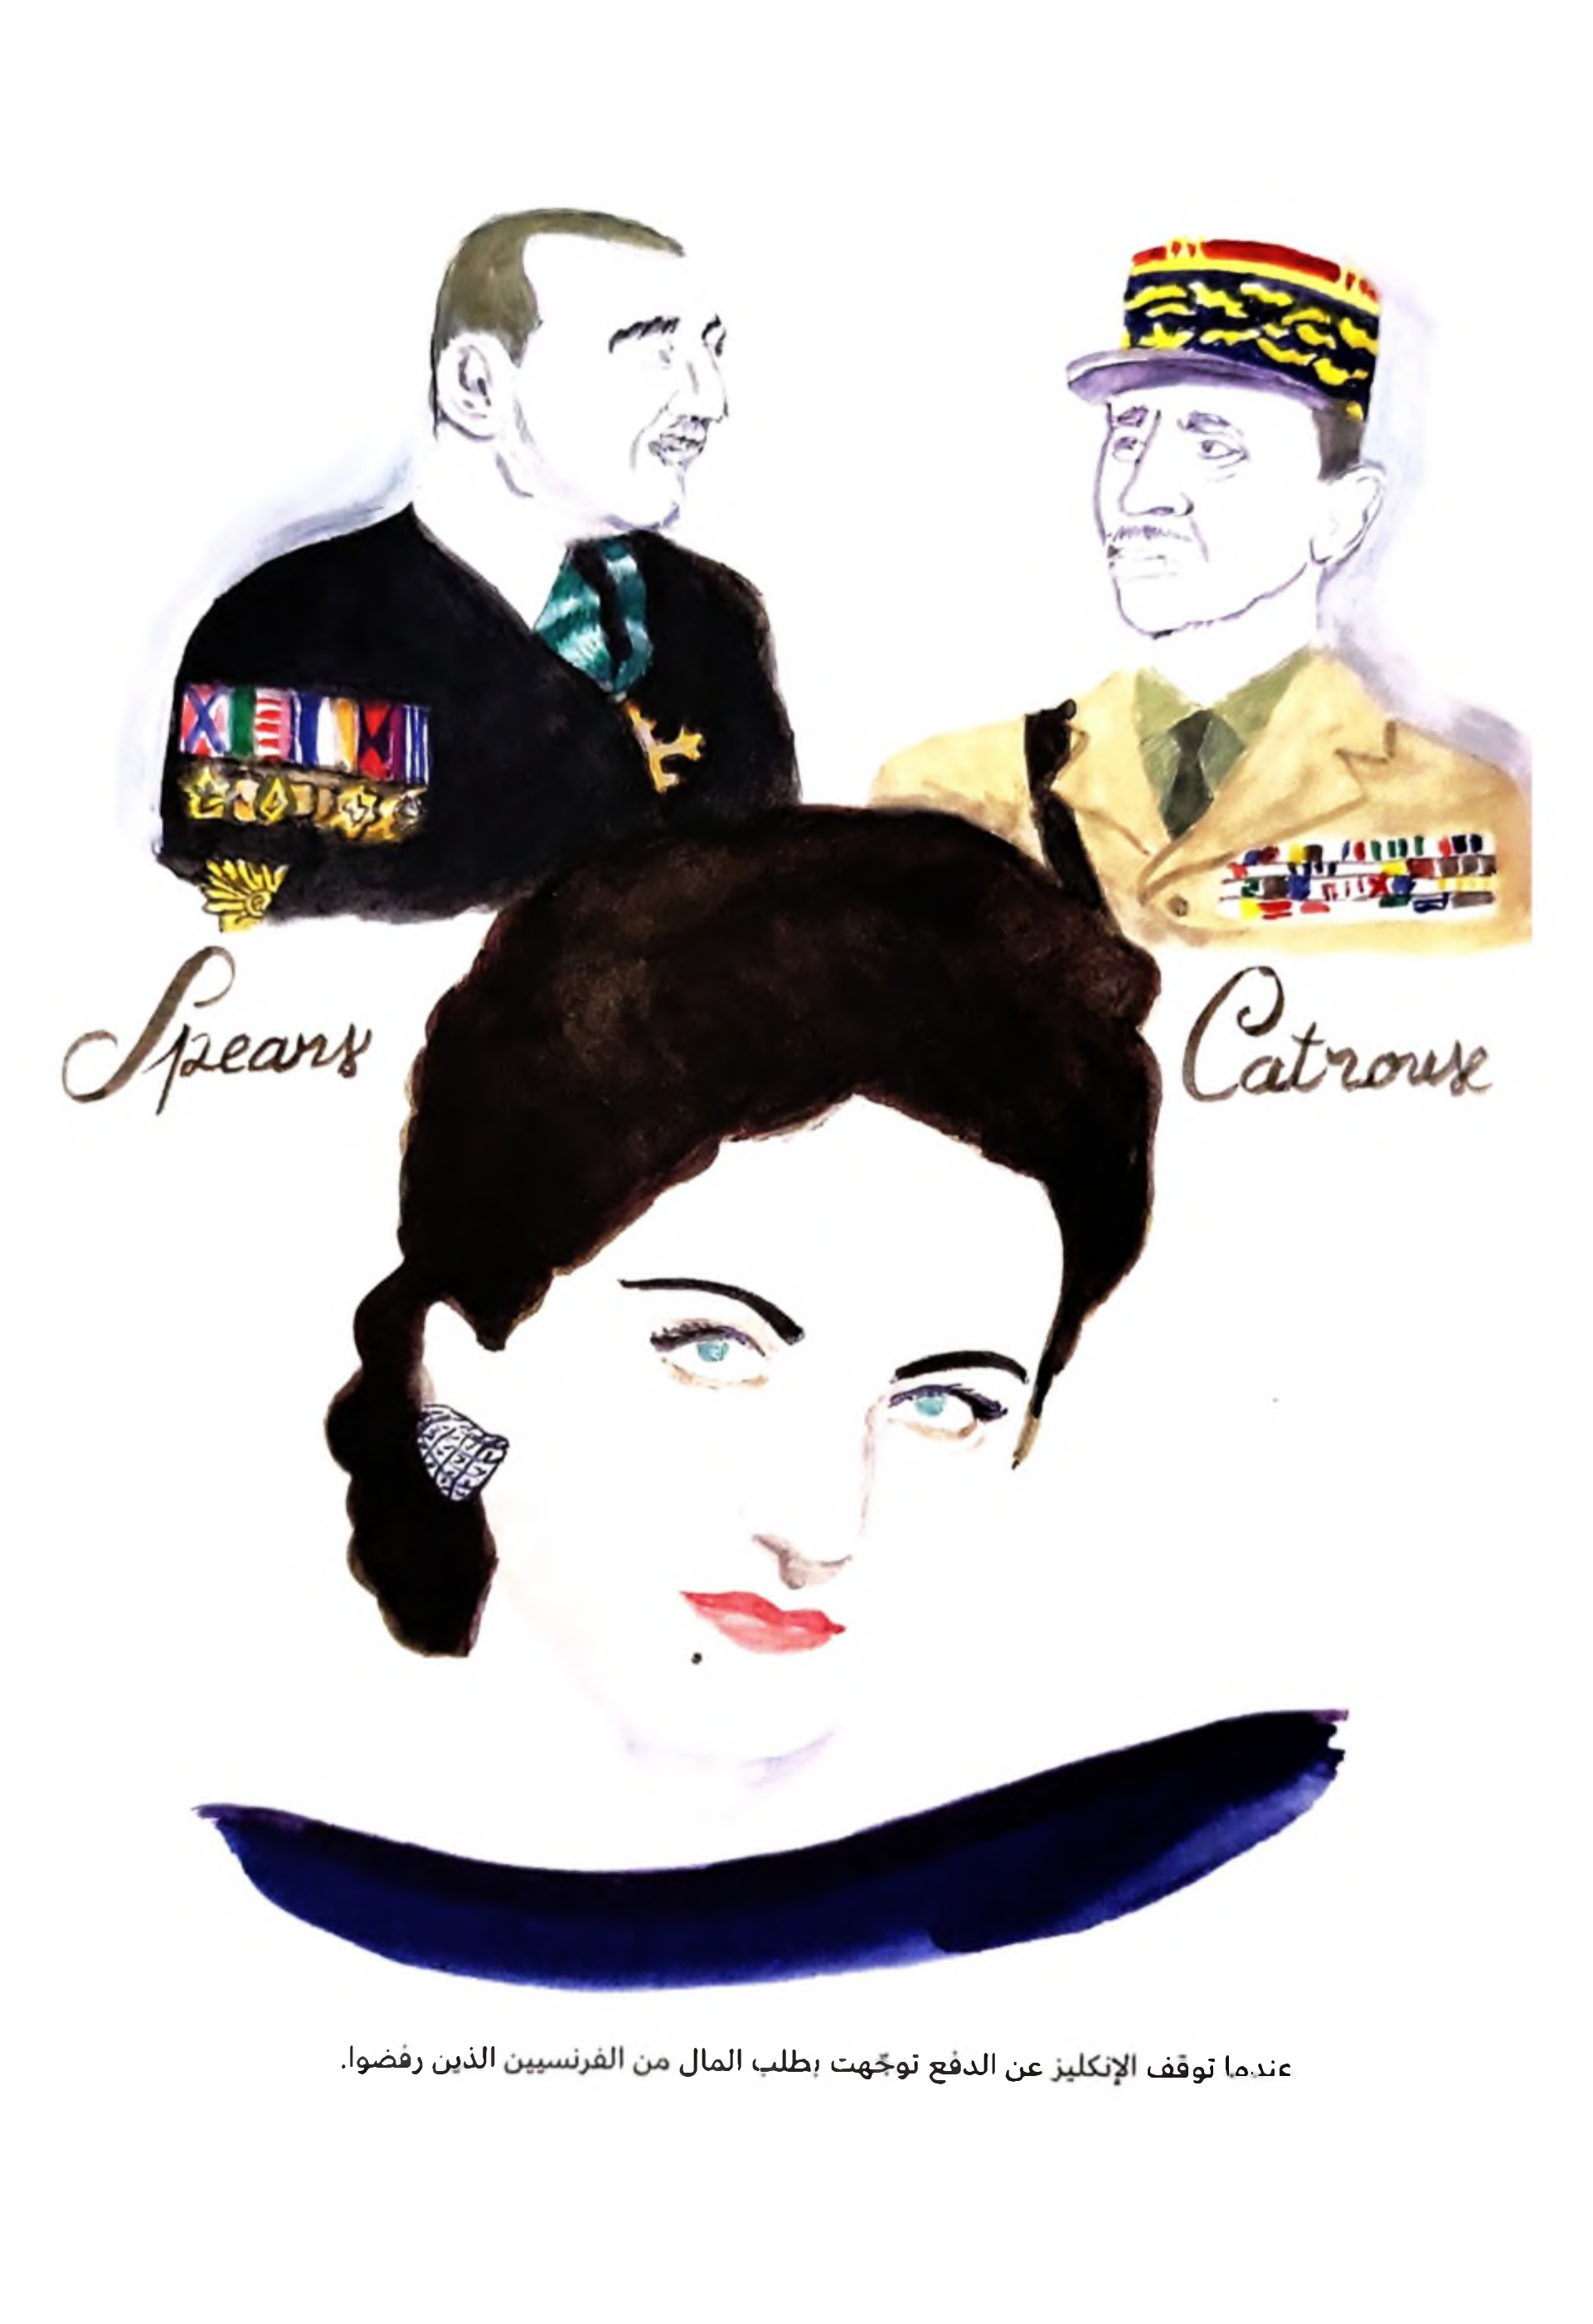 Spears
Catroux
عندما توقّف الإنكليز عن الدفع توجّهت بطلب المال من الفرنسيين الذين رفضوا.